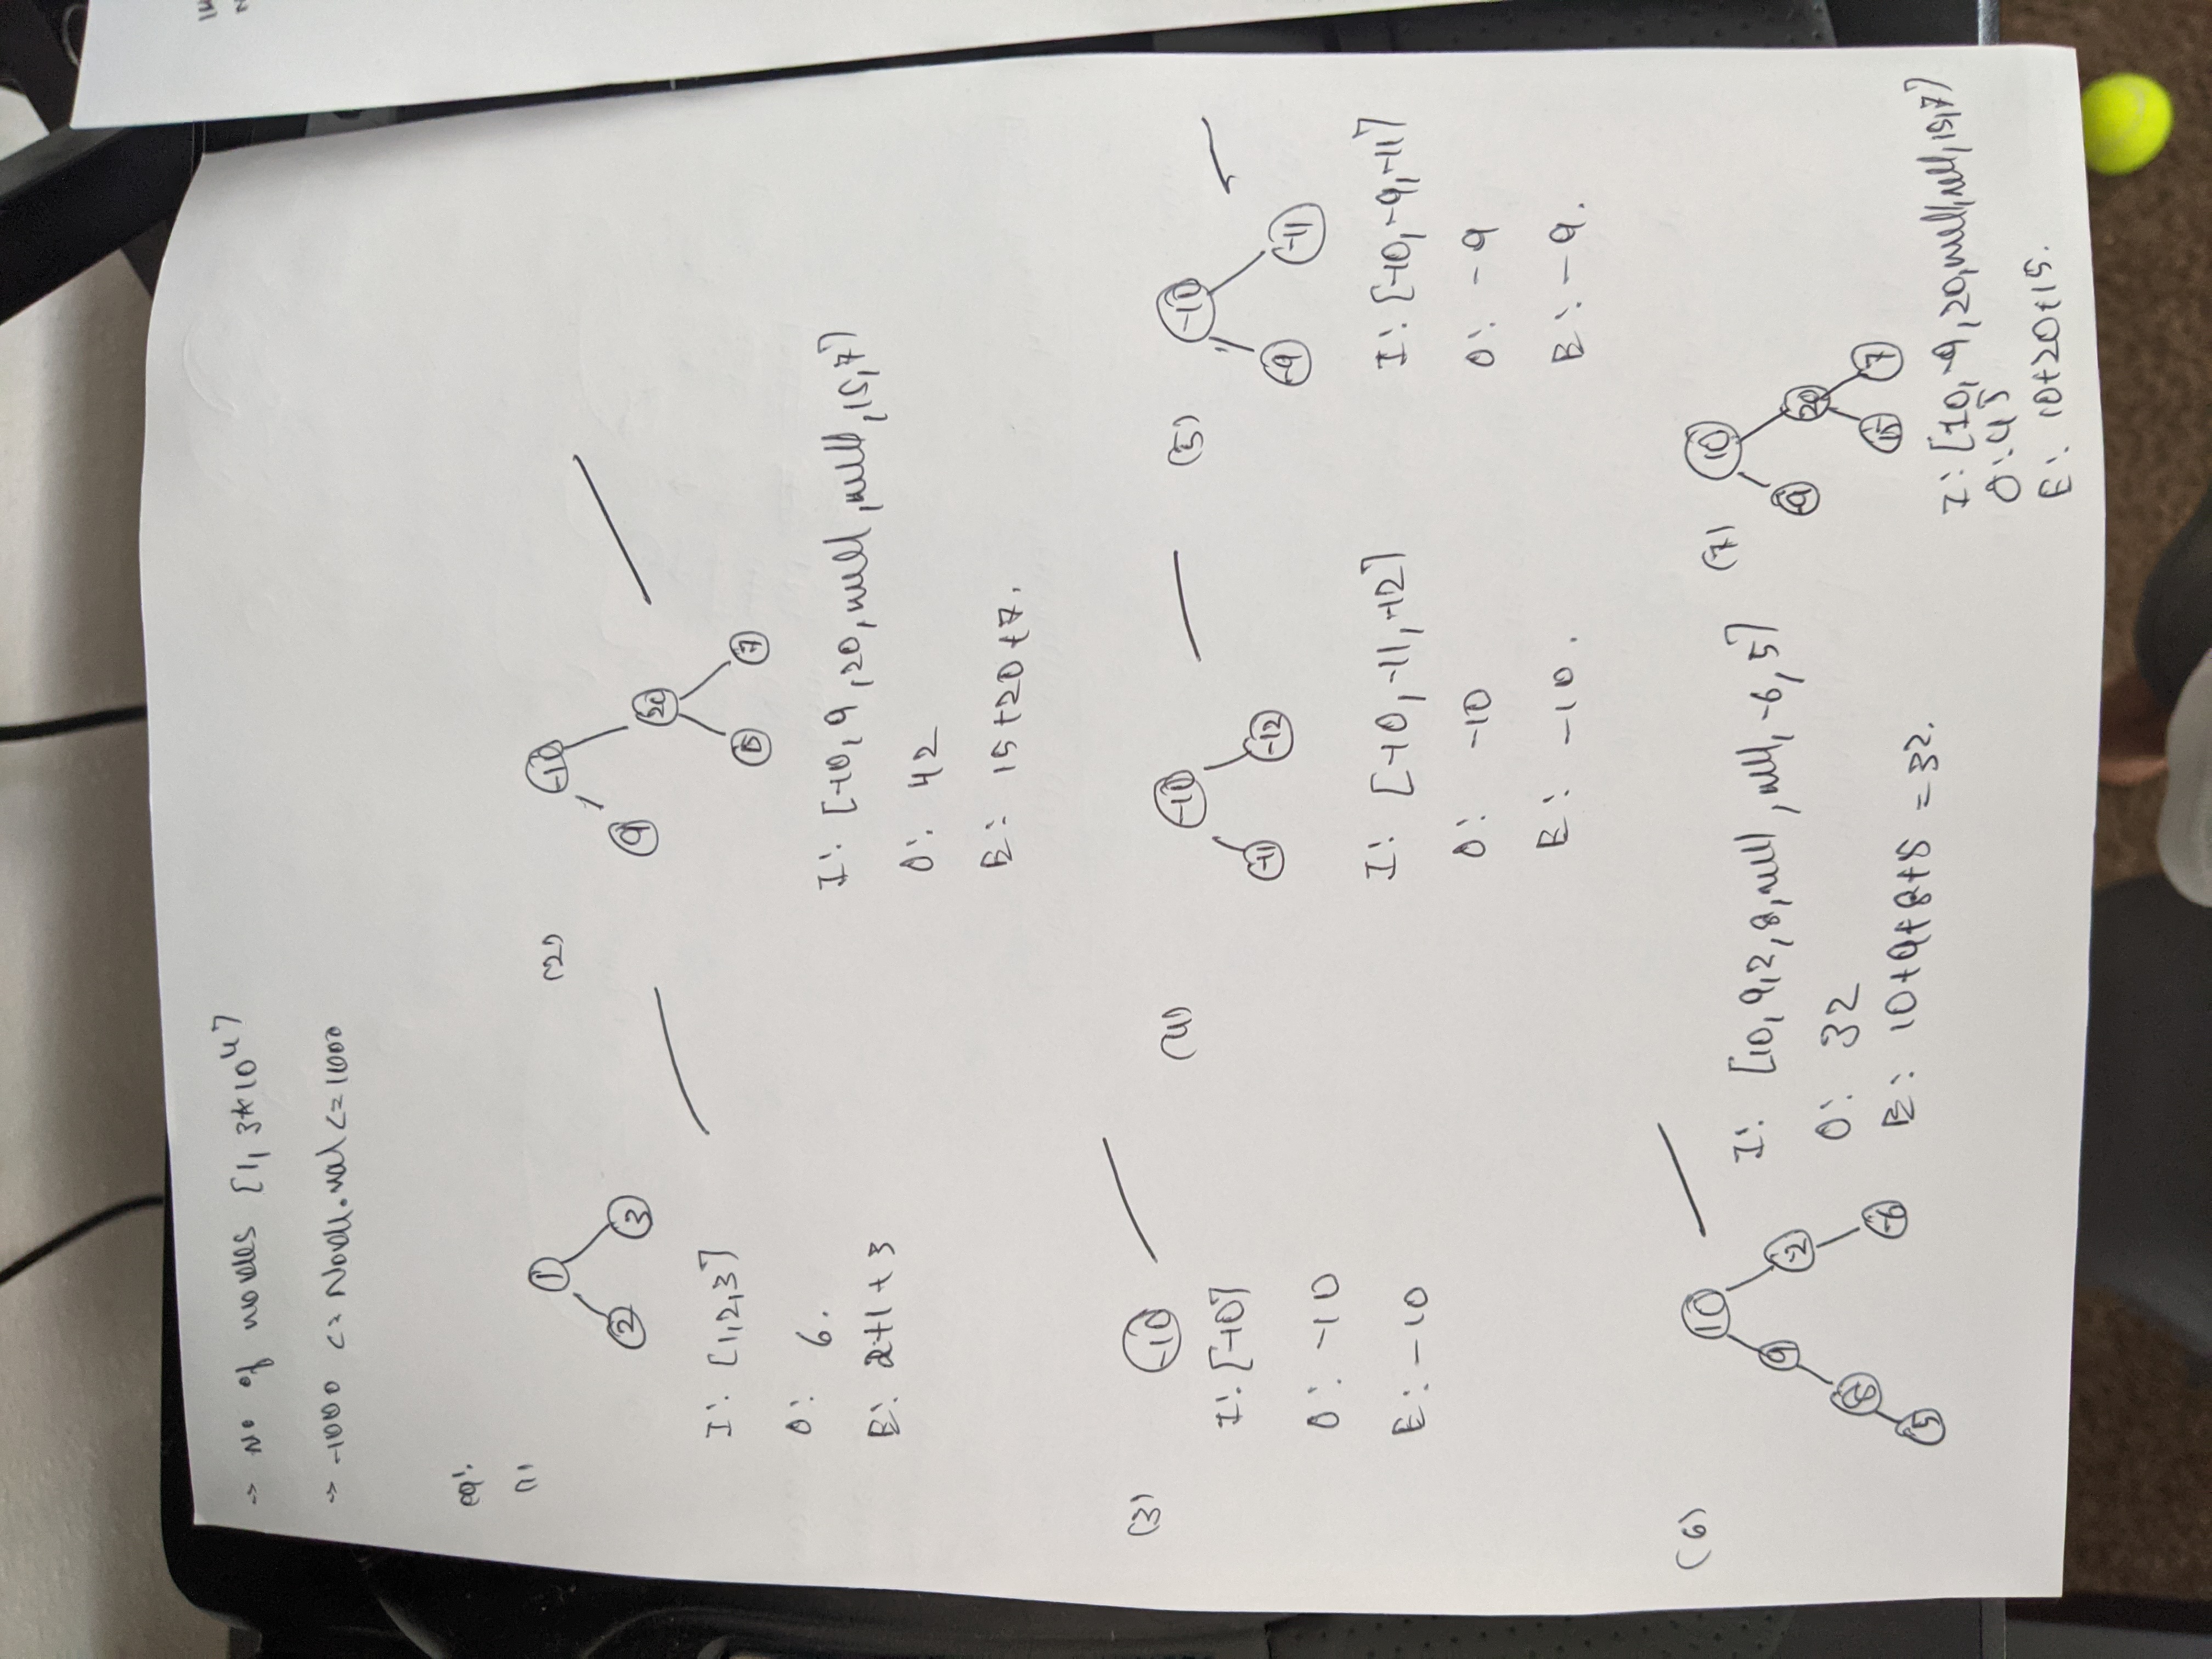 -> No of nodes [1, 3*10^4]
-> -1000 <= Node.val <= 1000
eg:
(1)
1
2 3
I: [1,2,3]
O: 6.
E: 2+1+3
(2)
-10
9
20
15 7
I: [-10, 9, 20, null, null, 15, 7]
O: 42
E: 15+20+7.
(3)
-10
I: [-10]
O: -10
E: -10
(4)
-10
-11 -12
I: [-10, -11, -12]
O: -10
E: -10.
(5)
-10
-9 -11
I: [-10, -9, -11]
O: -9
E: -9.
(6)
10
9 -2
8 -6
5
I: [10, 9, 2, 8, null, null, -6, 5]
O: 32
E: 10+9+8+5 = 32.
(7)
10
-9 20
15 7
I: [10, -9, 20, null, null, 15, 7]
O: 45
E: 10+20+15.